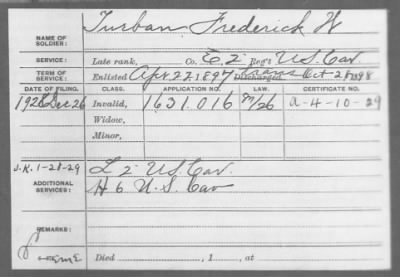 NAME OF SOLDIER: Turban Frederick W
SERVICE: Late rank, Co. E, 2 Reg't U.S. Cav
TERM OF SERVICE: Enlisted Apr 22 1897 Discharged Trans Oct 28 1898
DATE OF FILING. CLASS. APPLICATION NO. LAW. CERTIFICATE NO.
1928 Dec 26 Invalid, 1631.016 a-4-10-29
Widow,
Minor,
J.K. 1-28-29
ADDITIONAL SERVICES: L 2 U.S. Cav.
H 6 U.S. Cav
REMARKS:
Died , 1 , at